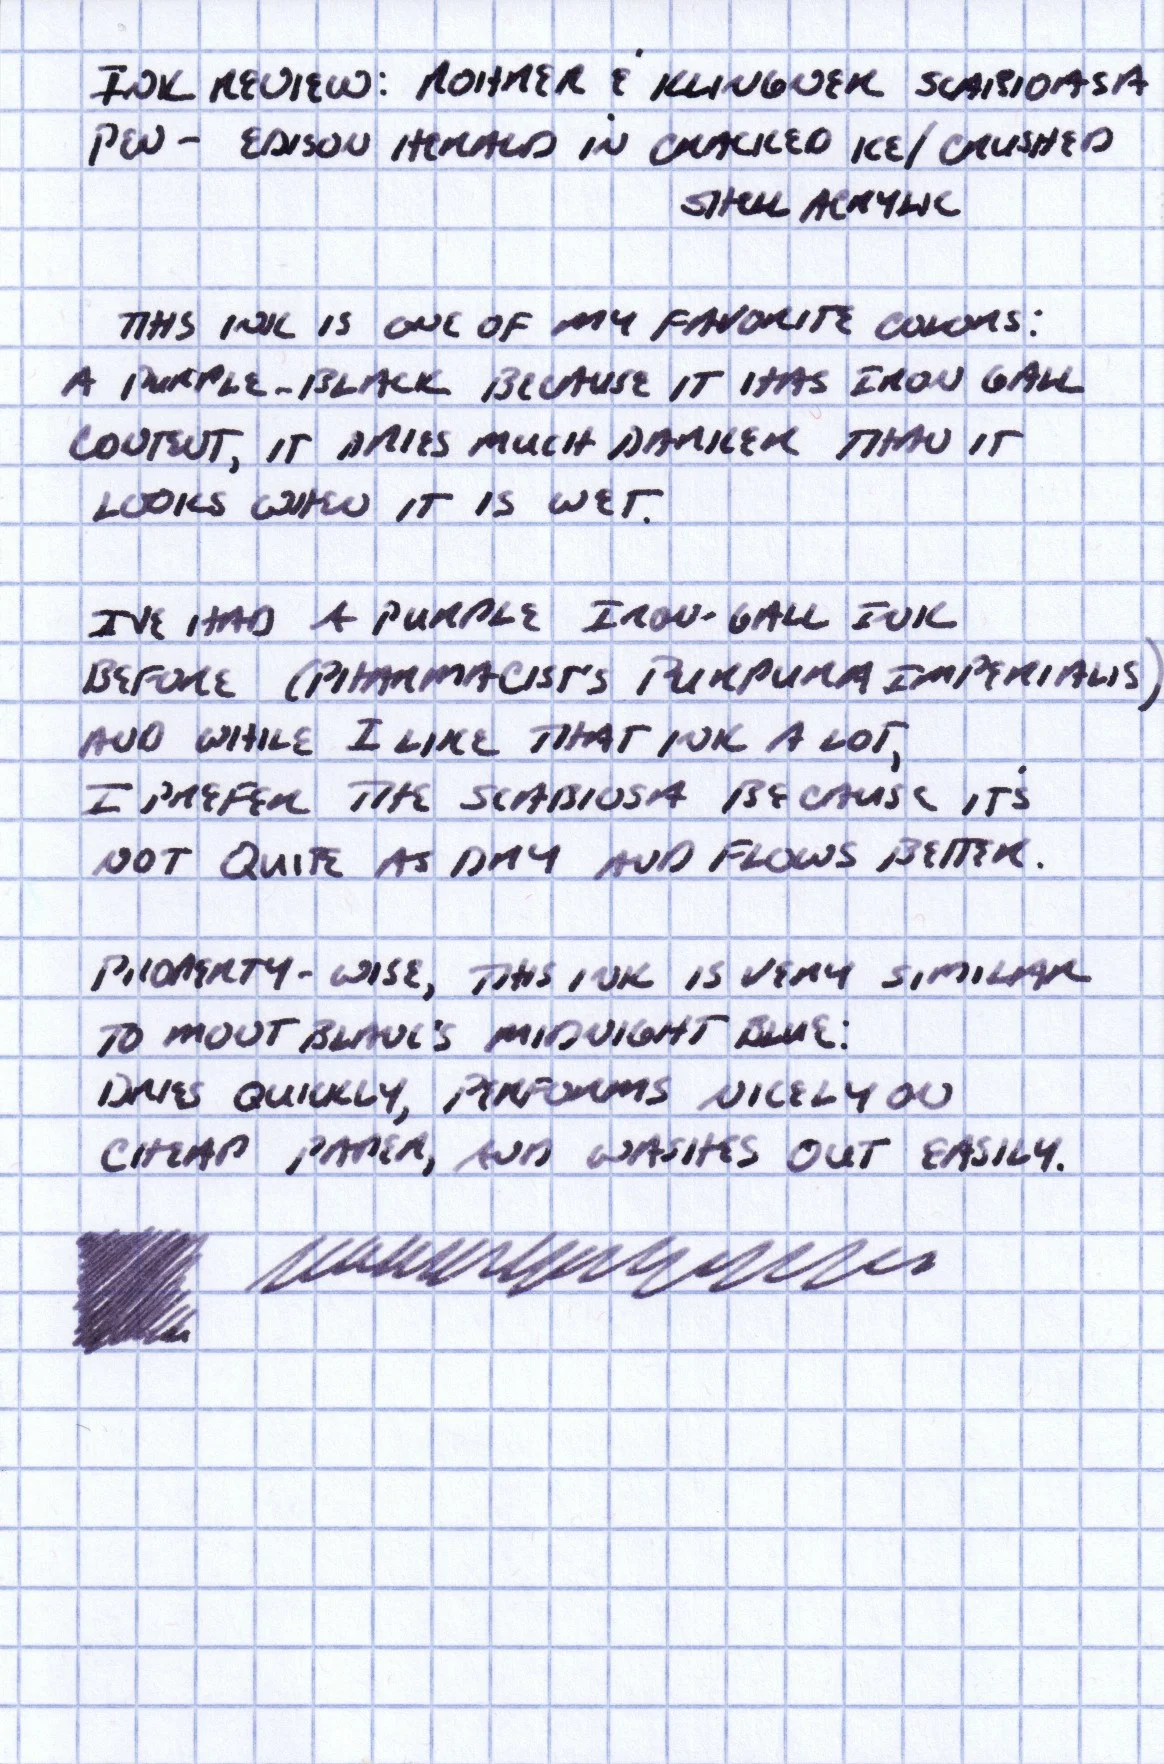 INK REVIEW: ROHRER & KLINGNER SCABIOSA
PEN - EDISON HERALD IN CRACKED ICE/CRUSHED
SHELL ACRYLIC
THIS INK IS ONE OF MY FAVORITE COLORS:
A PURPLE-BLACK BECAUSE IT HAS IRON GALL
CONTENT, IT DRIES MUCH DARKER THAN IT
LOOKS WHEN IT IS WET.
I'VE HAD A PURPLE IRON-GALL INK
BEFORE (PHARMACIST'S PURPURA IMPERIALIS)
AND WHILE I LIKE THAT INK A LOT,
I PREFER THE SCABIOSA BECAUSE IT'S
NOT QUITE AS DRY AND FLOWS BETTER.
PROPERTY-WISE, THIS INK IS VERY SIMILIAR
TO MONT BLANC'S MIDNIGHT BLUE:
DRIES QUICKLY, PERFORMS NICELY ON
CHEAP PAPER, AND WASHES OUT EASILY.